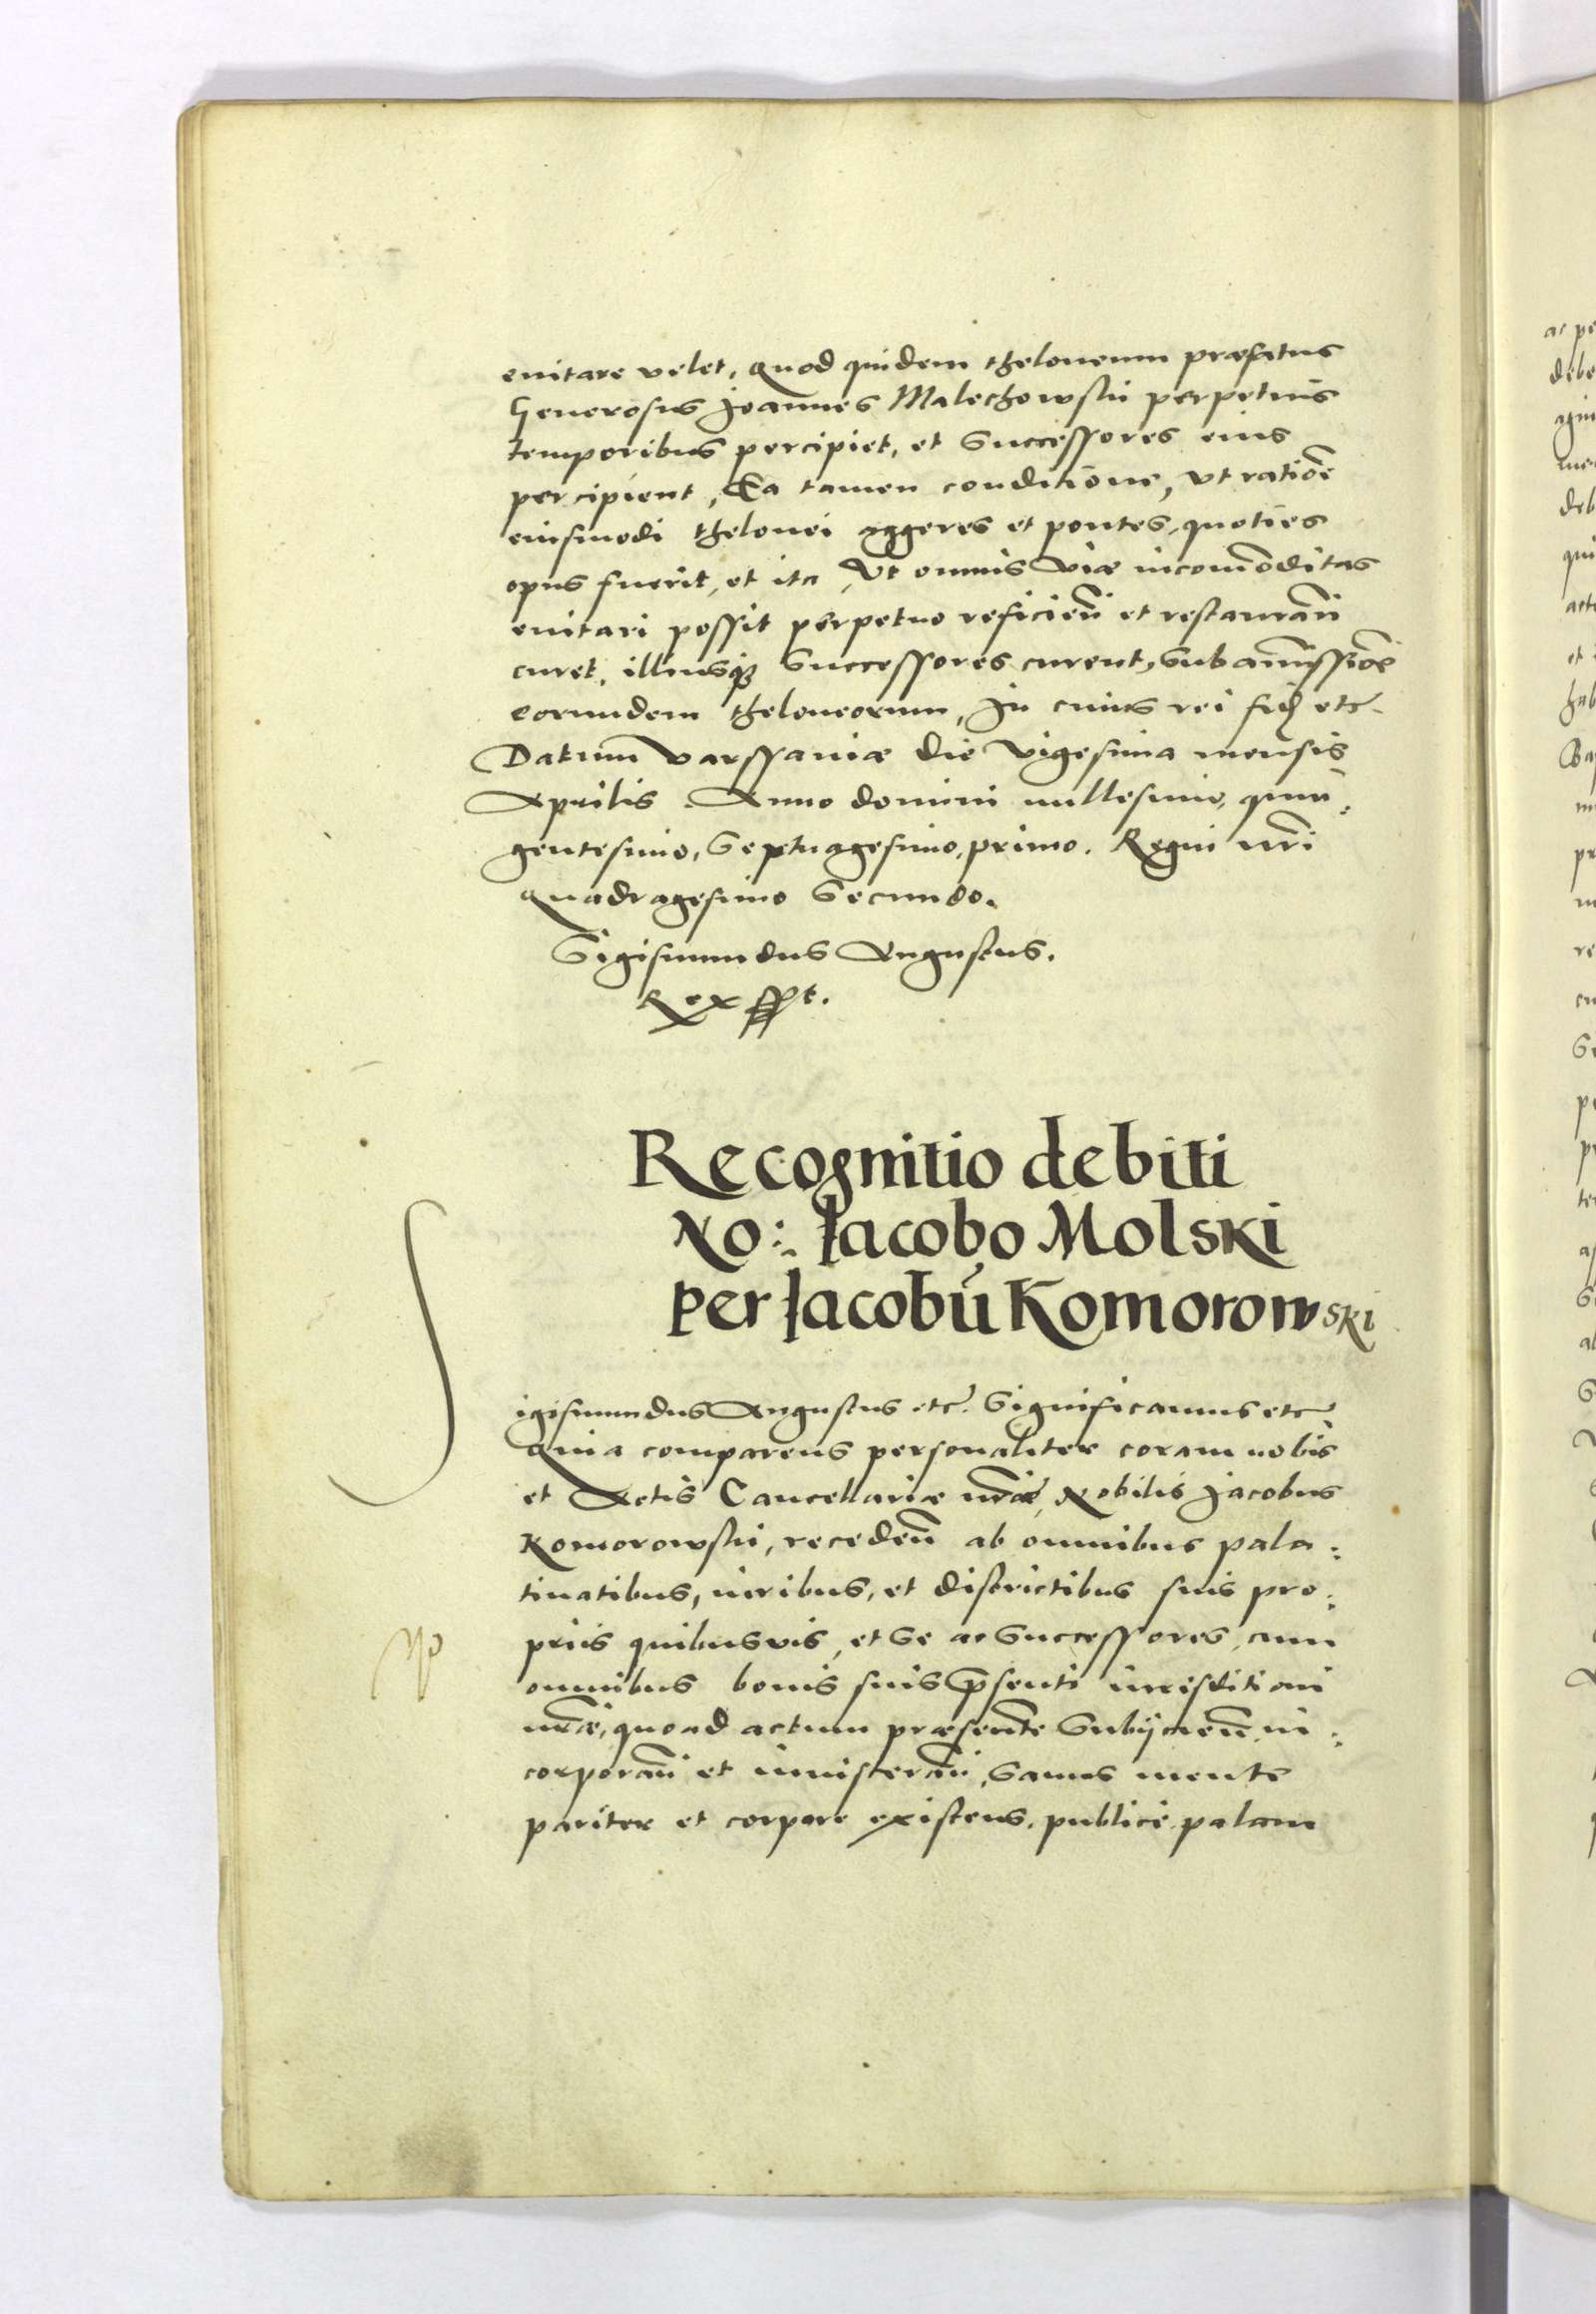 euitare velet, Quod quidem theloneum præfatus
Generosus Joannes Malechowski perpetuis
temporibus percipiet, et Successores eius
percipient, Ea tamen conditione, vt ratiõe
eiusmodi thelonei aggeres et pontes, quoties
opus fuerit, et ita, Vt omnis viæ incom̃oditas
euitari possit perpetuo reficien̄ et restauran̄
curet, illiusq̃ Successores curent, Sub amissiõe
eorundem theloneorum, In cuius rei fid̃ etc.
Datum Varssauiæ die Vigesima mensis
Aprilis Anno domini millesimo, quin:
gentesimo, Septuagesimo, primo. Regni nr̃i
Quadragesimo Secundo.
Sigismundus Augustus.
Rex sspt.
Recognitio debiti
No: Iacobo Molski
per Iacobũ Komorowski
Sigismundus Augustus etc. Significamus etc
Quia comparens personaliter coram nobis
et Actis Cancellariæ nr̃æ, Nobilis Jacobus
Komorowski, receden̄ ab omnibus pala:
tinatibus, iuribus, et districtibus suis pro:
priis quibusuis, et Se ac Successores, cum
omnibus bonis suis p̃senti iurisditioni
nr̃æ, quoad actum præsentẽ Subijcien̄ in:
corporan̄ et inuisceran̄, Sanus mente
pariter et corpore existens, publicè palam